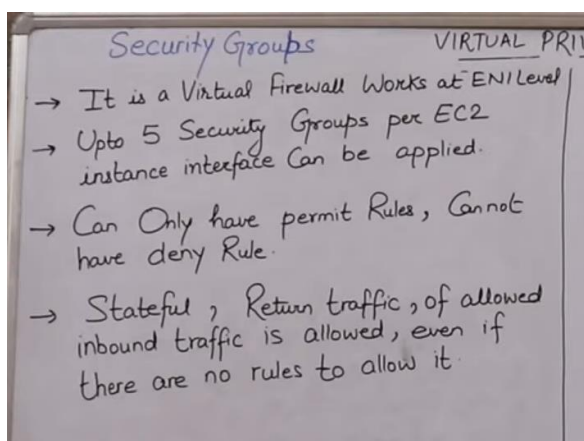 Security Groups
VIRTUAL PRI
→ It is a Virtual Firewall Works at ENI Level
→ Upto 5 Security Groups per EC2
instance interface Can be applied.
→ Can Only have permit Rules, Cannot
have deny Rule.
→ Stateful, Return traffic, of allowed
inbound traffic is allowed, even if
there are no rules to allow it.